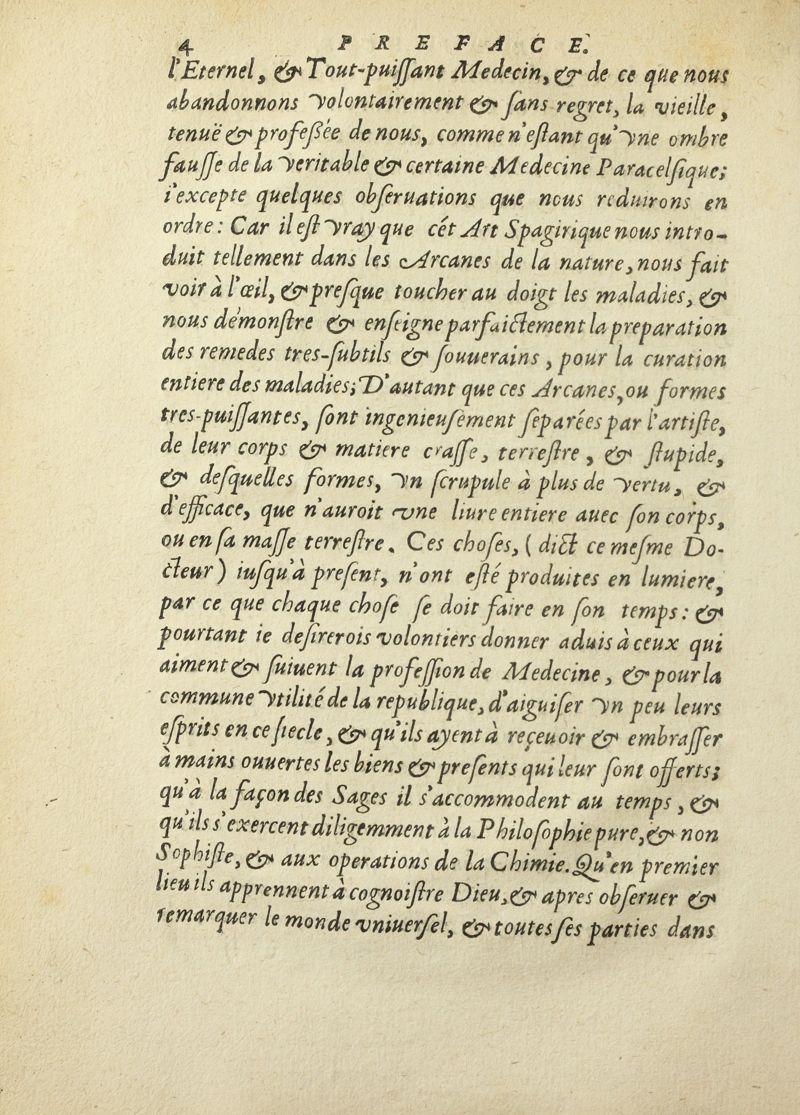 4 PREFACE.
l'Eternel, & Tout-puiſſant Medecin, & de ce que nous
abandonnons volontairement & ſans regret, la vieille,
tenuë & profeßée de nous, comme n'eſtant qu'vne ombre
fauſſe de la veritable & certaine Medecine Paracelſique;
i'excepte quelques obſeruations que nous reduirons en
ordre: Car il eſt vray que cét Art Spagirique nous intro-
duit tellement dans les Arcanes de la nature, nous fait
voir à l'œil, & preſque toucher au doigt les maladies, &
nous démonſtre & enſeigne parfaictement la preparation
des remedes tres-ſubtils & ſouuerains, pour la curation
entiere des maladies; D'autant que ces Arcanes, ou formes
tres-puiſſantes, ſont ingenieuſement ſeparées par l'artiſte,
de leur corps & matiere craſſe, terreſtre, & ſtupide,
& deſquelles formes, vn ſcrupule à plus de vertu, &
d'efficace, que n'auroit vne liure entiere auec ſon corps,
ou en ſa maſſe terreſtre. Ces choſes, (dict ce meſme Do-
cteur) iuſqu'à preſent, n'ont eſté produites en lumiere,
par ce que chaque choſe ſe doit faire en ſon temps: &
pourtant ie deſirerois volontiers donner aduis à ceux qui
aiment & ſuiuent la profeſſion de Medecine, & pour la
commune vtilité de la republique, d'aiguiſer vn peu leurs
eſprits en ce ſiecle, & qu'ils ayent à reçeuoir & embraſſer
à mains ouuertes les biens & preſents qui leur ſont offerts;
qu'à la façon des Sages il s'accommodent au temps, &
qu'ils s'exercent diligemment à la Philoſophie pure, & non
Sophiſte, & aux operations de la Chimie. Qu'en premier
lieu ils apprennent à cognoiſtre Dieu, & apres obſeruer &
remarquer le monde vniuerſel, & toutes ſes parties dans